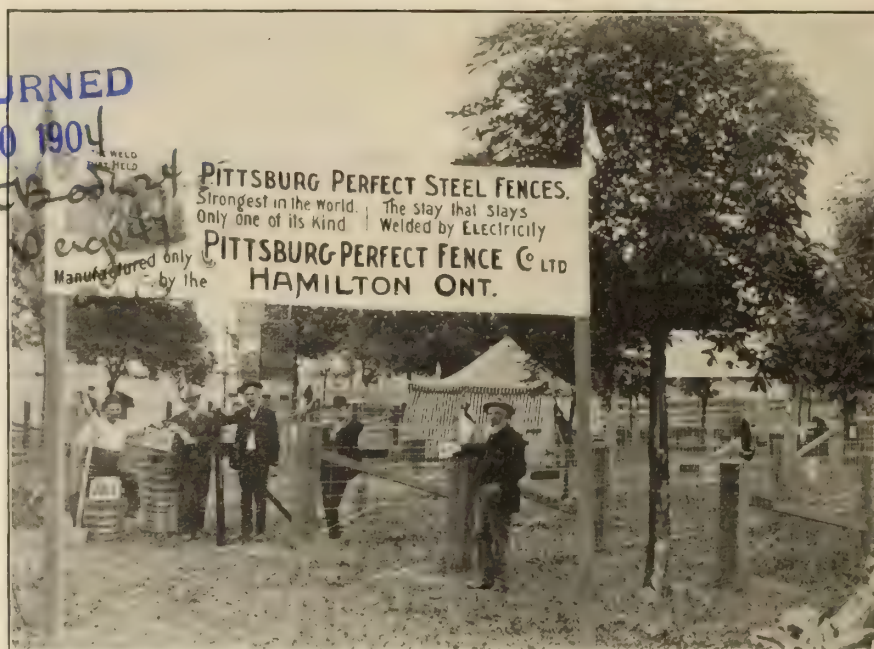 URNED
0 1904
WELD
THAT HELD
PITTSBURG PERFECT STEEL FENCES.
Strongest in the World. The stay that stays
Only one of its Kind Welded by ELECTRICITY
Manufactured only by the
PITTSBURG PERFECT FENCE Co LTD
HAMILTON ONT.